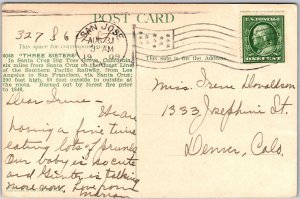 POST CARD
327 S 6
SAN JOSE
AUG 23
5 AM
This space for correspondence
This side is for the Address.
4048 "THREE SISTERS"
In Santa Cruz Big Tree Grove, California,
miles from Santa Cruz on the Coast Line
of the Southern Pacific Railway, from Los
Angeles to San Francisco, via Santa Cruz;
250 feet high, 45 feet outside to outside of the
roots. Burned out by forest fire prior
to 1848.
U.S. POSTAGE
ONE CENT
Miss. Irene Donaldson
1333 Josephine St.
Denver, Colo.
Dear Irene—
We are
having a fine time
eating lots of prunes
Our baby is so cute
and is talking
more now. Love from
Marian